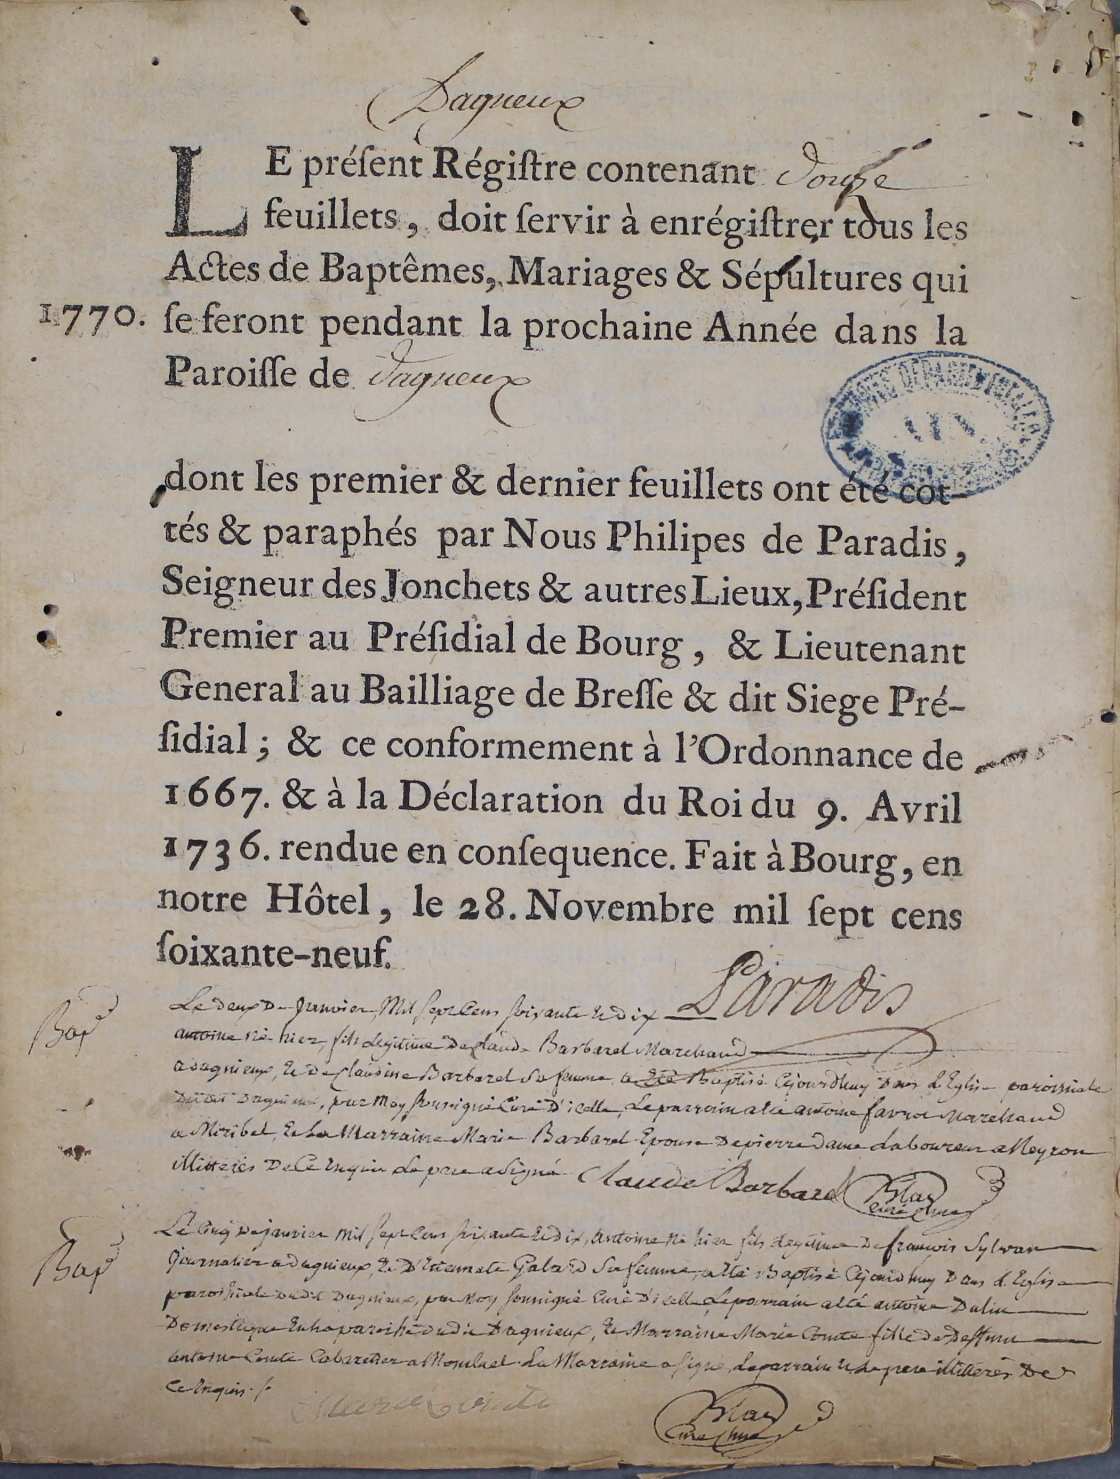 Dagneux
LE préſent Régiſtre contenant douze
feuillets, doit ſervir à enrégiſtrer tous les
Actes de Baptêmes, Mariages & Sépultures qui
1770. ſe feront pendant la prochaine Année dans la
Paroiſſe de Dagneux
dont les premier & dernier feuillets ont été cot-
tés & paraphés par Nous Philipes de Paradis,
Seigneur des Jonchets & autres Lieux, Préſident
Premier au Préſidial de Bourg, & Lieutenant
General au Bailliage de Breſſe & dit Siege Pré-
ſidial ; & ce conformement à l'Ordonnance de
1667. & à la Déclaration du Roi du 9. Avril
1736. rendue en conſequence. Fait à Bourg, en
notre Hôtel, le 28. Novembre mil ſept cens
ſoixante-neuf.
Paradis
Bap
Le deux De Janvier Mil sept Cens soixante et dix
antoine né hier, fils legitime De Claude Barbarel Marchand
a dagnieux, et De Claudine Barbarel Sa femme a été Baptisé Cejourdhuy Dans L'Eglise paroissiale
Dudit Dagnieux, par Moy soussigné Curé D'icelle, Le parrain a été antoine favrot Marchand
a Miribel, et La Marraine Marie Barbarel Epouse De pierre dame Laboureur a Neyron
illitterés De Ce Enquis Le pere a signé Claude Barbarel
Bap
Le Cinq De janvier Mil sept Cens soixante et dix, antoine né hier fils legitime De françois Sylvan
journalier a dagnieux, et D'Etiennete Galard Sa femme, a été Baptisé Cejourdhuy Dans L'Eglise
paroissiale Dudit Dagnieux, par Moy soussigné Curé D'icelle Le parrain a été antoine Dalin
Domestique En la paroisse dudit Dagnieux, et Marraine Marie Comte fille De Deffunt
antoine Comte Cabaretier a Montluel La Marraine a signé, Le parrain et Le pere illitterés De
Ce Enquis